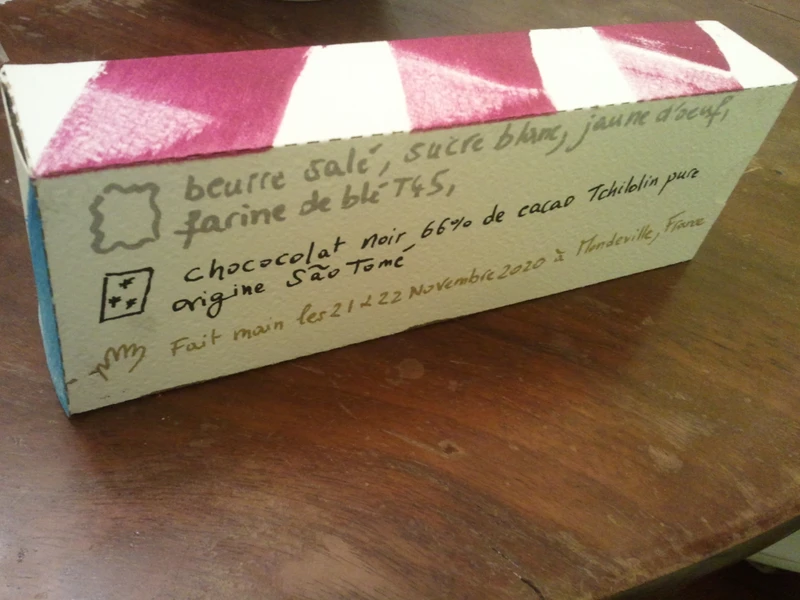 beurre salé, sucre blanc, jaune d'oeuf,
farine de blé T45,
chococolat noir 66% de cacao Tchilolin pure
origine São Tomé
Fait main les 21 & 22 Novembre 2020 à Mondeville, France